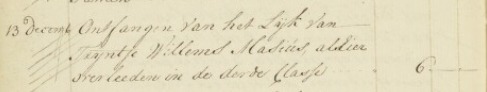 13 Decemb Ontfangen van het Lijk van
Trijntje Willems Masiùs, alhier
overleeden in de derde Classe 6